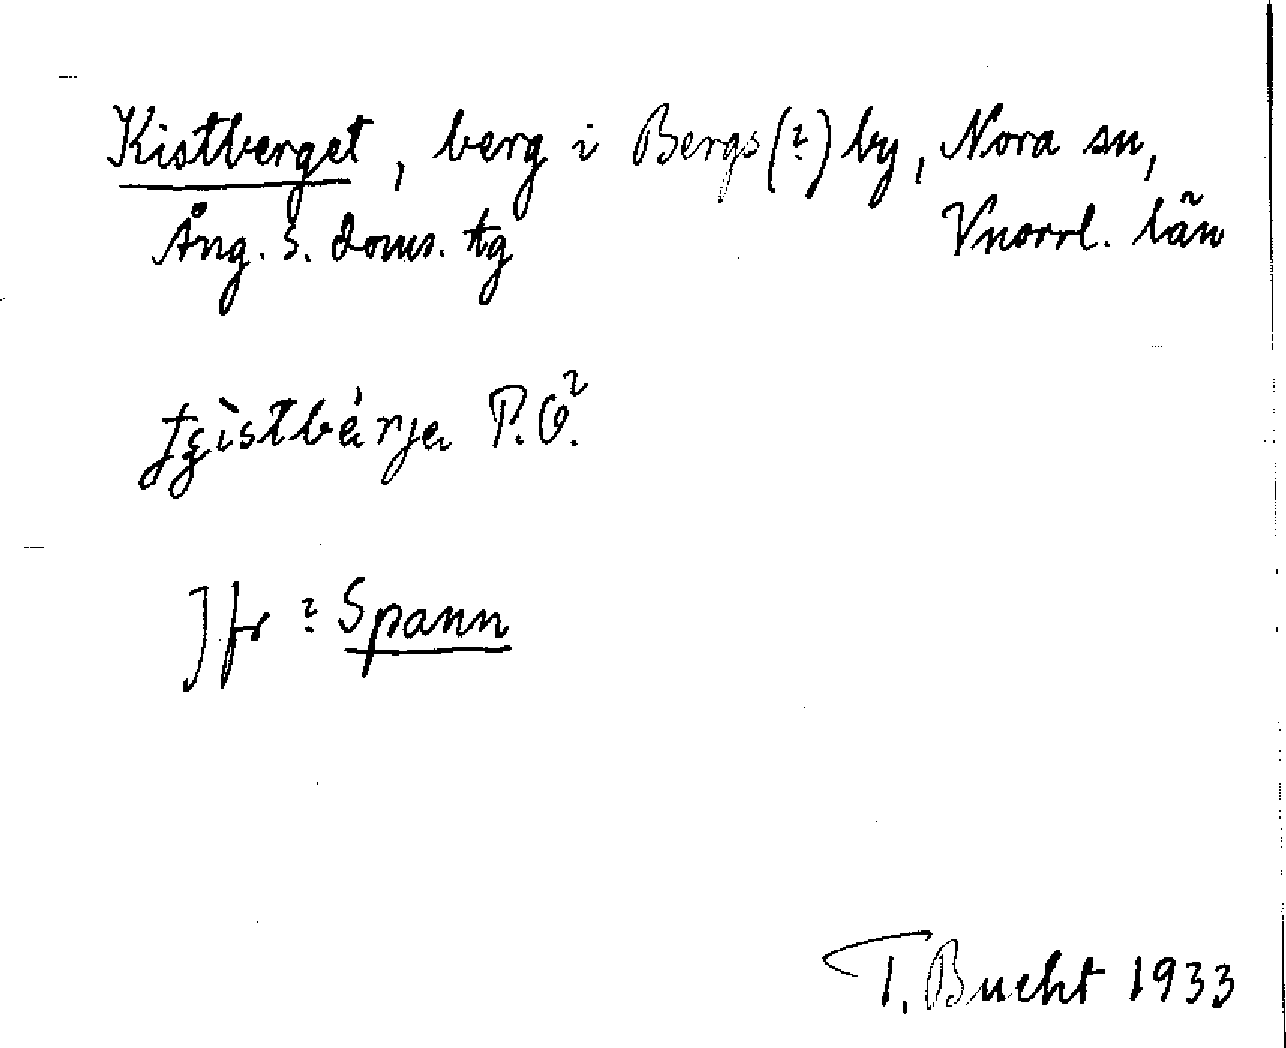 Kistberget, berg i Bergs(?) by, Nora sn,
Ång. s. doms. tg Vnorrl. län
P.O.?
Jfr ? Spann
T. Bucht 1933